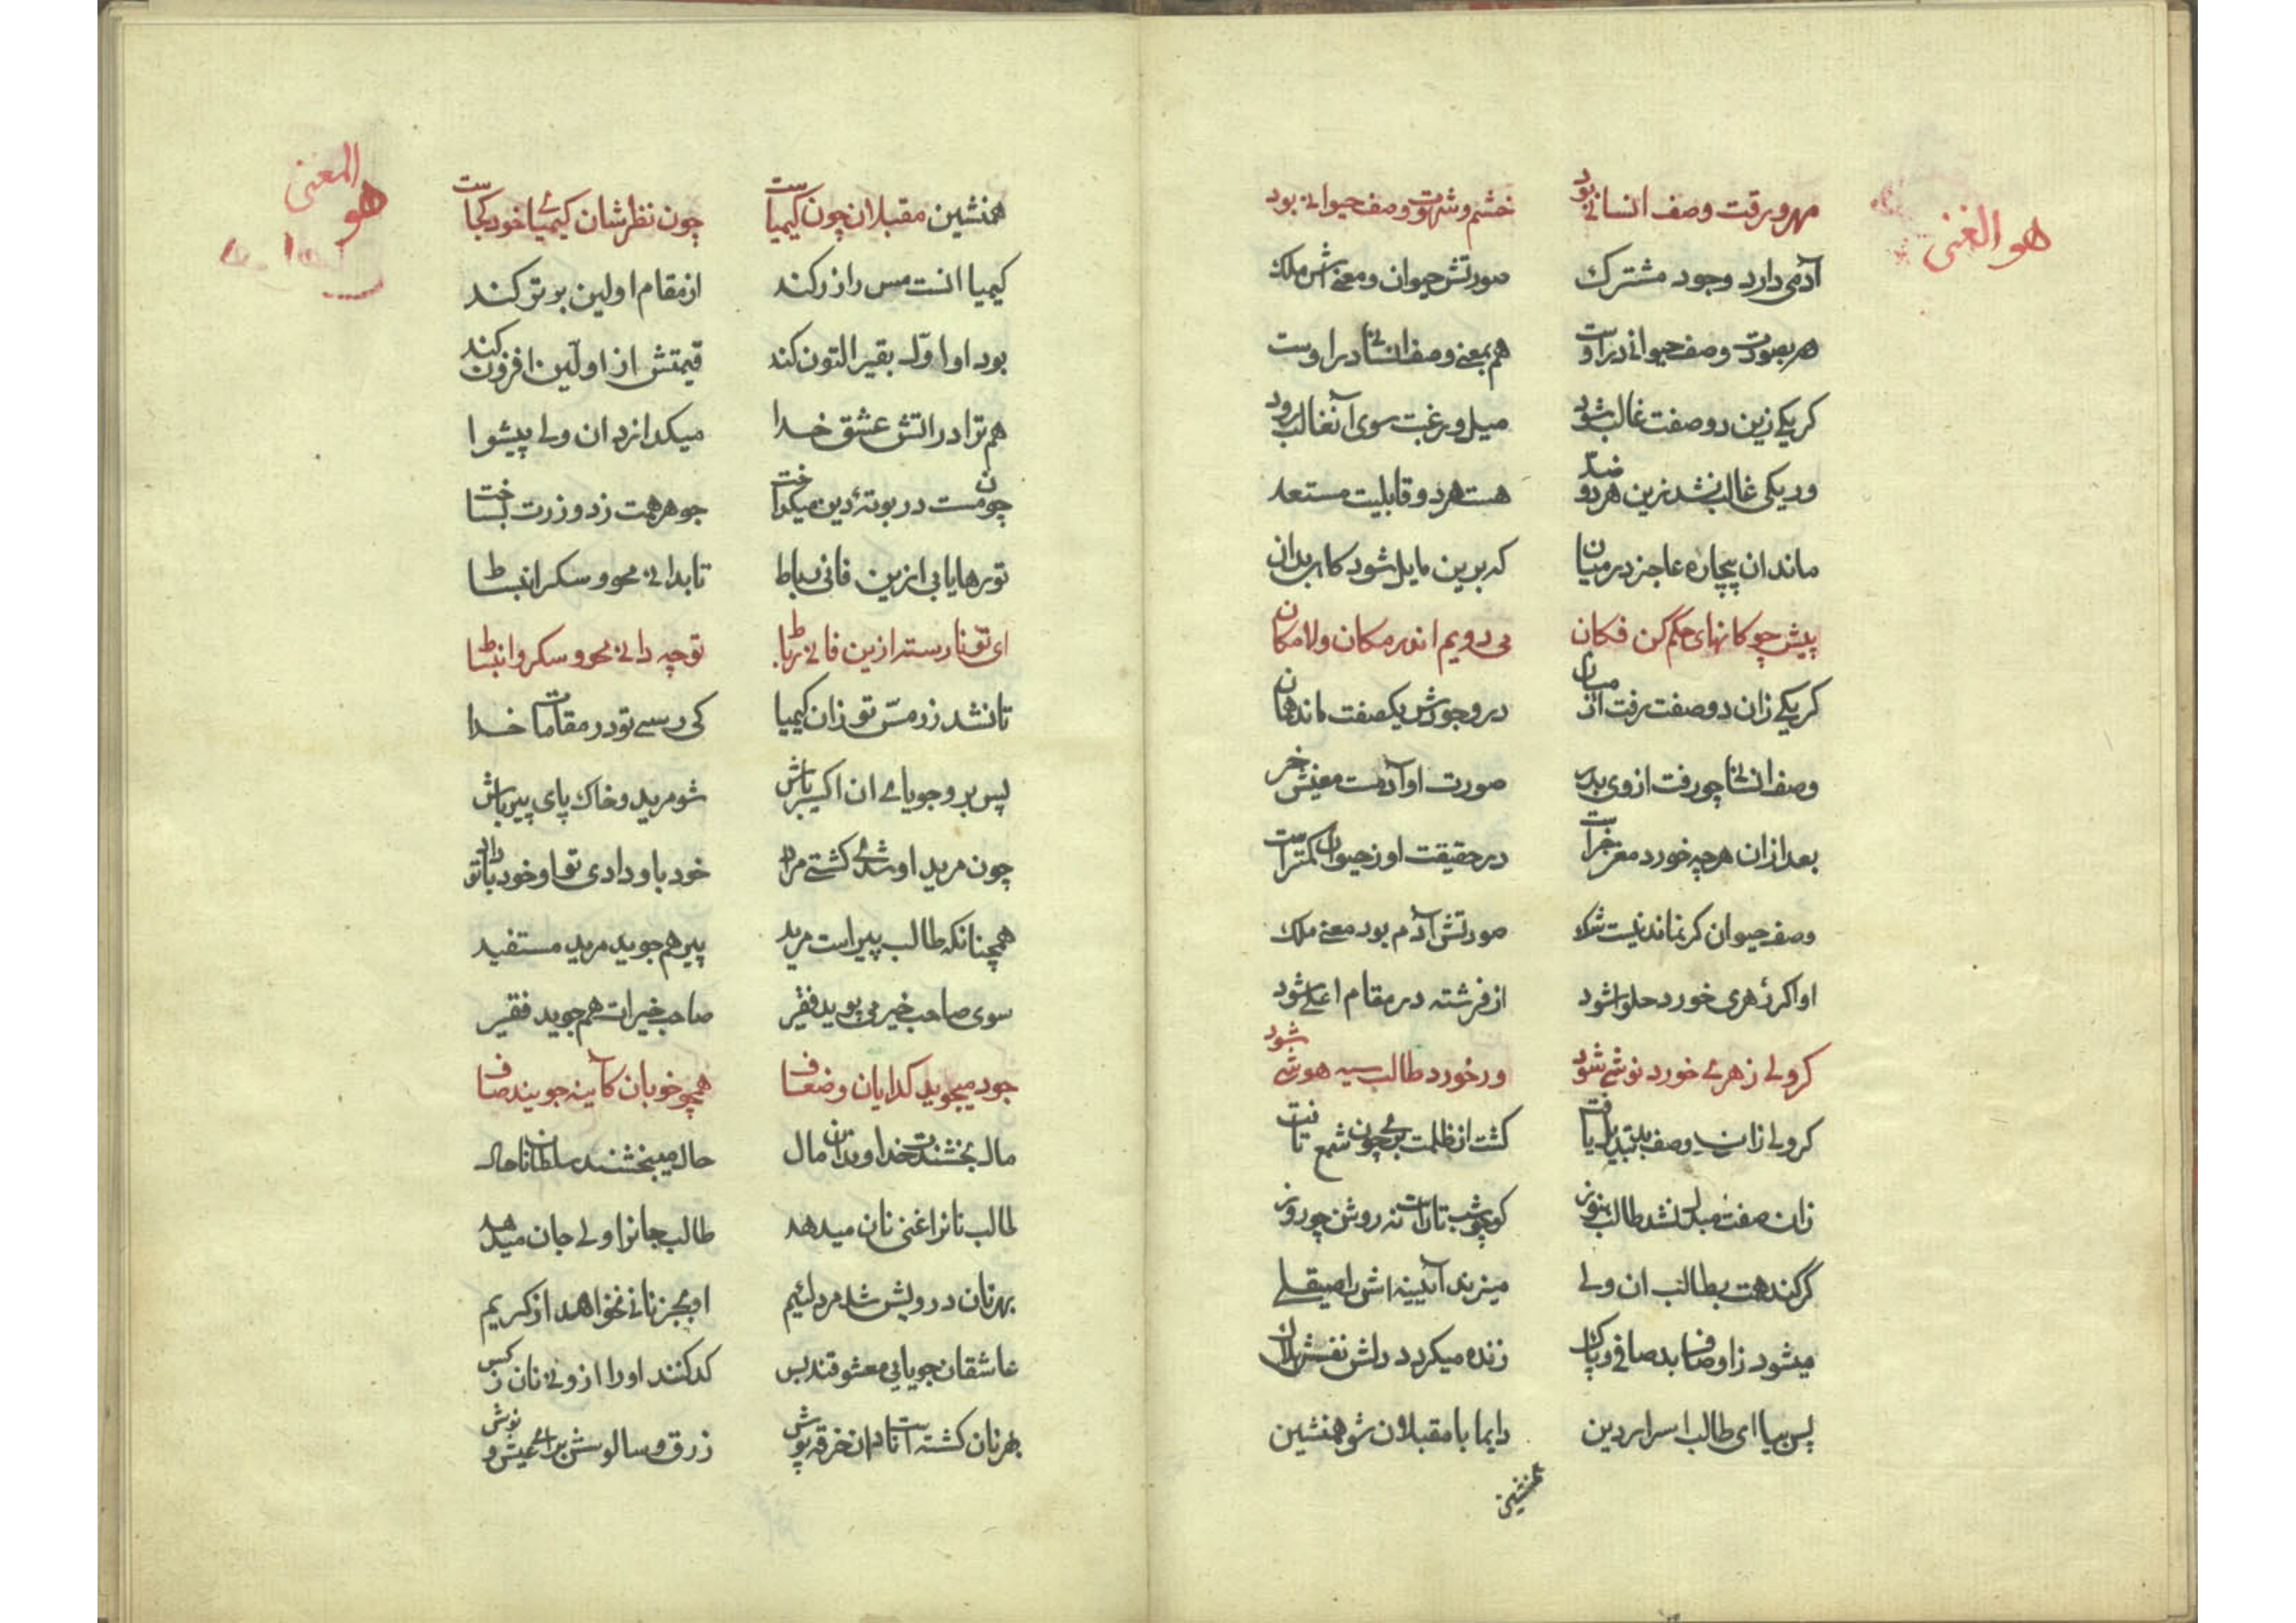 هو الغنی
مهر و رقت وصف انسانی بود خشم و شهوت وصف حیوانی بود
آدمی دارد وجود مشترك صورتش حیوان و معنیش ملك
هم بصورت وصف حیوانی در اوست هم بمعنی وصف انسانی در اوست
کر یکی زین دو صفت غالب شود میل و رغبت سوی آن غالب رود
ور یکی غالب نشد زین هر دو ضد هست هر دو قابلیت مستعد
ماند ان بیچاره عاجز در میان که برین مایل شود کاهی بدان
پیش چوکانهای حکم کن فکان می دویم اندر مکان و لامکان
کر یکی زان دو صفت رفت از میان در وجودش یکصفت ماند همان
وصف انسانی چو رفت از وی بدر صورت او آدمست معنیش خر
بعد ازان هر چه خورد مغز خراست در حقیقت او ز حیوان کمتر است
وصف حیوان کر نماند نیست شك صورتش آدم بود معنی ملك
او اکر زهری خورد حلوا شود از فرشته در مقام اعلی شود
کر ولی زهری خورد نوشی شود ور خورد طالب سیه هوشی شود
کر ولی زان وصف بد تبدیل یافت کشت از ظلمت بری چون شمع تافت
زان صفت مبدل نشد طالب هنوز کو چو شب تاراست نه روشن چو روز
گر کند همت بطالب ان ولی میزند آیینه اش را صیقلی
میشود ز اوصاف بد صافی و پاك زنده میکردد دلش نفسش هلاك
پس بیا ای طالب اسرار دین دایما با مقبلان شو همنشین
همنشین
هو المغنی
همنشین مقبلان چون کیمیاست چون نظرشان کیمیائی خود کجاست
کیمیا انست مس را زر کند از مقام اولین برتر کند
بود او اول بقیر التون کند قیمتش از اولین افزون کند
هم ترا در اتش عشق خدا میکدازد ان ولی پیشوا
چون مست در بوتهٔ دین میکداخت جوهر همت زد و زرت بساخت
تو رها یابی ازین فانی رباط تا بدانی محو و سکر انبساط
ای تو نارسته ازین فانی رباط تو چه دانی محو و سکر و انبساط
تا نشد زر مس تو زان کیمیا کی رسی تو در مقامات خدا
پس برو جویای ان اکسیر باش شو مرید و خاك پای پیر باش
چون مرید او شدی کشتی مراد خود باو دادی تو او خود با تو داد
همچنانکه طالب پیر است مرید پیر هم جوید مرید مستفید
سوی صاحب خیر می پوید فقیر صاحب خیرات هم جوید فقیر
جود میجوید کدایان و ضعاف همچو خوبان کآینه جویند صاف
مال بخشندت خداوندان مال حال میبخشند سلطانان حال
طالب نانرا غنی نان میدهد طالب جانرا ولی جان میدهد
بهر نان درویش شد مرد لئیم او بجز نانی نخواهد از کریم
عاشقان جویای معشوقند بس کد کنند او را ازو نی نان ز کس
بهر نان کشته است نادان خرقه پوش زرق و سالوسش برای عیش و نوش